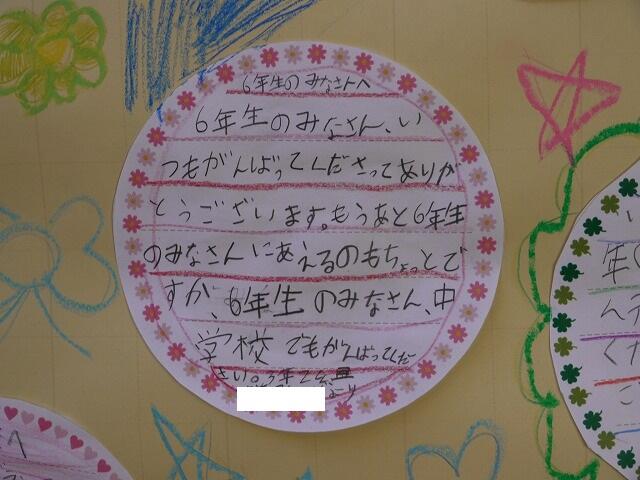 6年生のみなさんへ
6年生のみなさん、い
つもがんばってくださってありが
とうございます。もうあと6年生
のみなさんにあえるのもちょっとで
すが、6年生のみなさん、中
学校でもがんばってくだ
さい。3年2組
より
年
くだ
へ